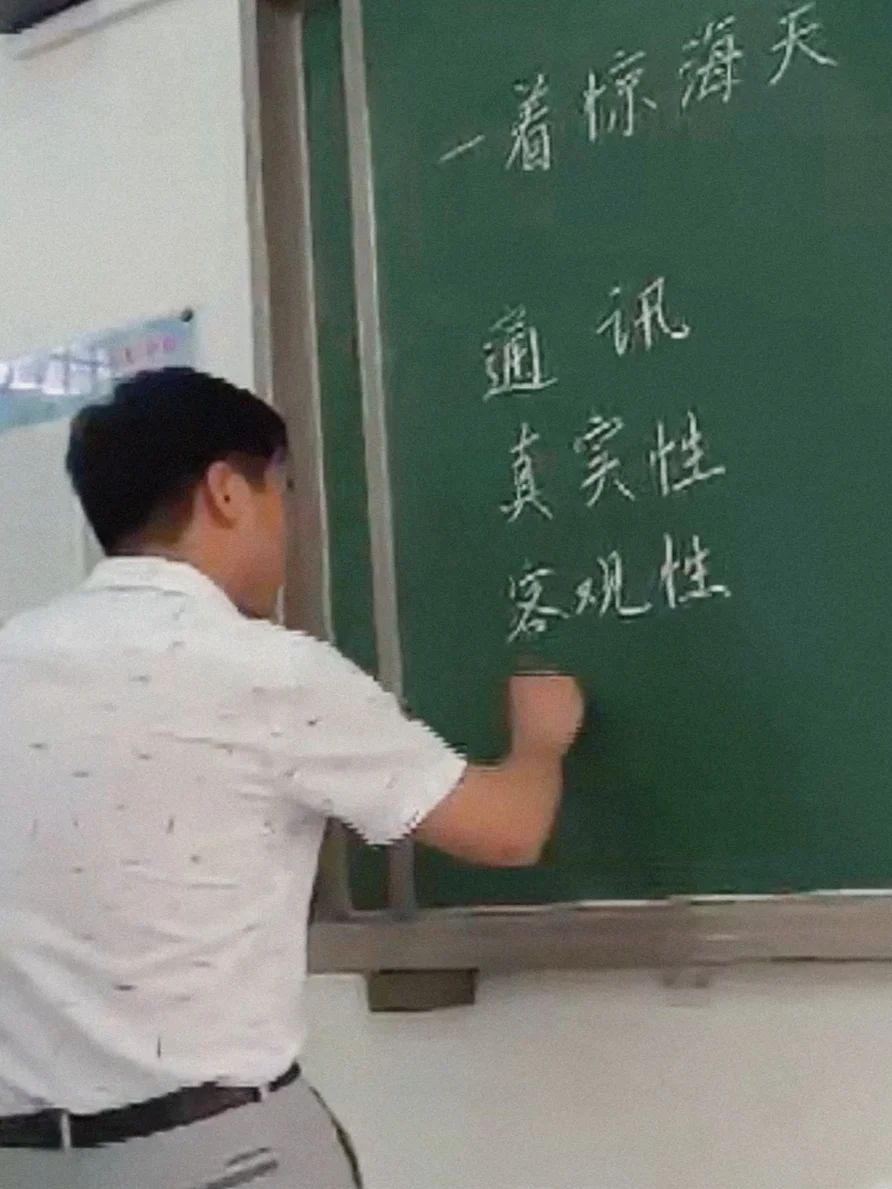 一着惊海天
通讯
真实性
客观性